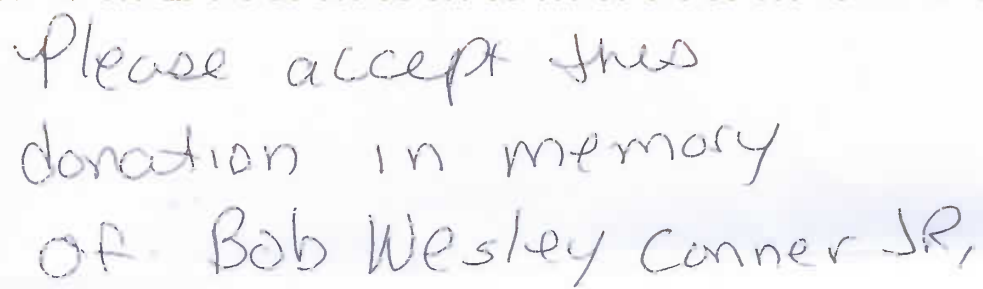 Please accept this
donation in memory
of Bob Wesley Conner JR,